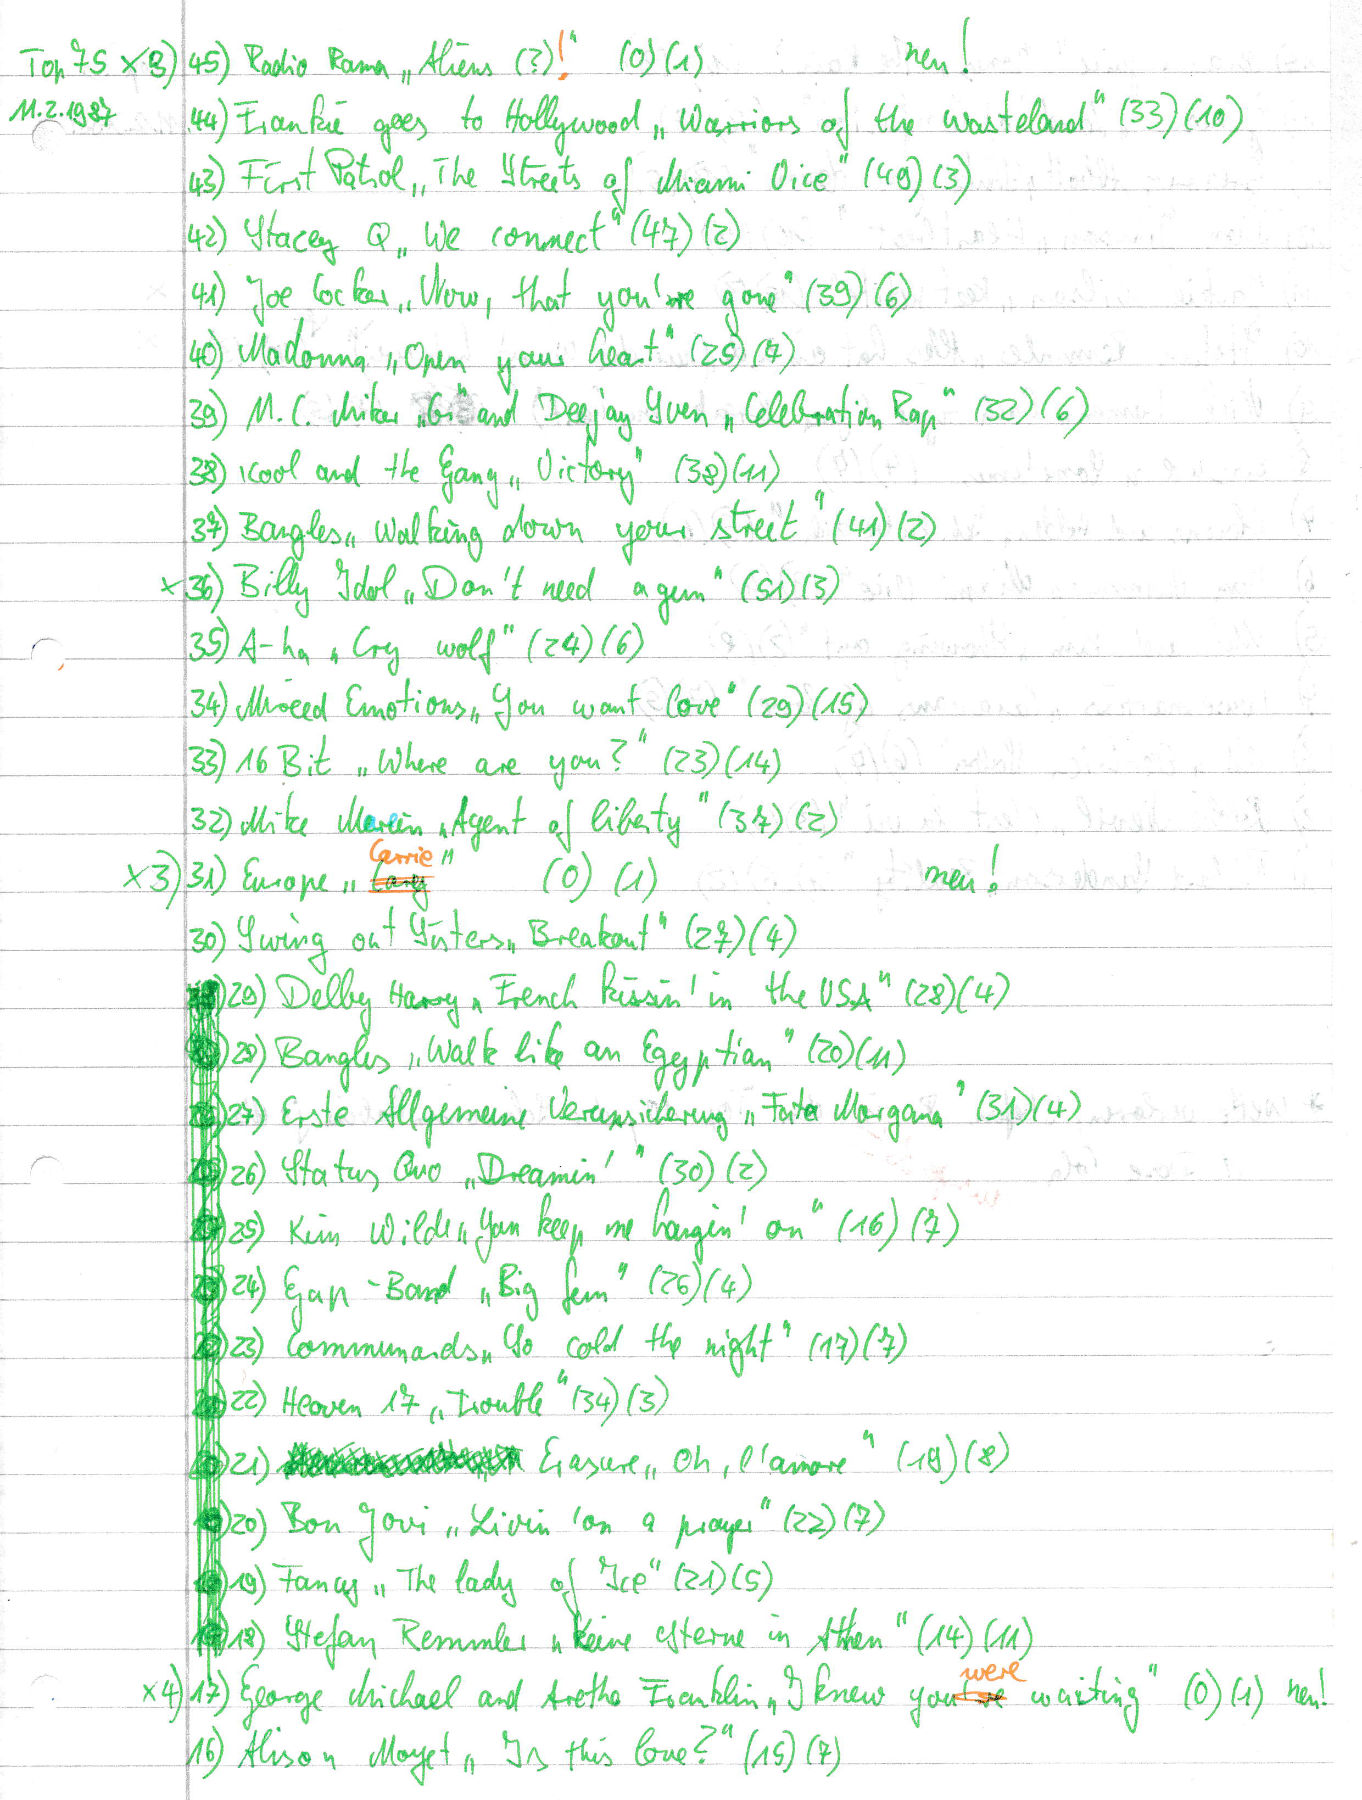 Top 75 x3) 45) Radio Rama „Aliens (?)!“ (0)(1) neu!
11.2.1987 44) Frankie goes to Hollywood „Warriors of the wasteland“ (33)(10)
43) First Patrol „The Streets of Miami Vice“ (49)(3)
42) Stacey Q „We connect“ (47)(2)
41) Joe Cocker „Now, that you're gone“ (39)(6)
40) Madonna „Open your heart“ (25)(7)
39) M.C. Miker „G“ and Deejay Sven „Celebration Rap“ (32)(6)
38) Kool and the Gang „Victory“ (38)(11)
37) Bangles „Walking down your street“ (41)(2)
x 36) Billy Idol „Don't need a gun“ (51)(3)
35) A-ha „Cry wolf“ (24)(6)
34) Mixed Emotions „You want love“ (29)(15)
33) 16 Bit „Where are you?“ (23)(14)
32) Mike Mareen „Agent of liberty“ (37)(2)
x3) 31) Europe „Carrie“ (0) (1) neu!
30) Swing out Sisters „Breakout“ (27)(4)
29) Debby Harry „French kissin' in the USA“ (28)(4)
28) Bangles „Walk like an Egyptian“ (20)(11)
27) Erste Allgemeine Verunsicherung „Fata Morgana“ (31)(4)
26) Status Quo „Dreamin'“ (30)(2)
25) Kim Wilde „You keep me hangin' on“ (16)(7)
24) Gap-Band „Big fun“ (26)(4)
23) Communards „So cold the night“ (17)(7)
22) Heaven 17 „Trouble“ (34)(3)
21) Erasure „Oh, l'amore“ (19)(8)
20) Bon Jovi „Livin' on a prayer“ (22)(7)
19) Fancy „The lady of Ice“ (21)(5)
18) Stefan Remmler „Keine Sterne in Athen“ (14)(11)
x4) 17) George Michael and Aretha Franklin „I knew you were waiting“ (0)(1) neu!
16) Alison Moyet „Is this love?“ (15)(7)